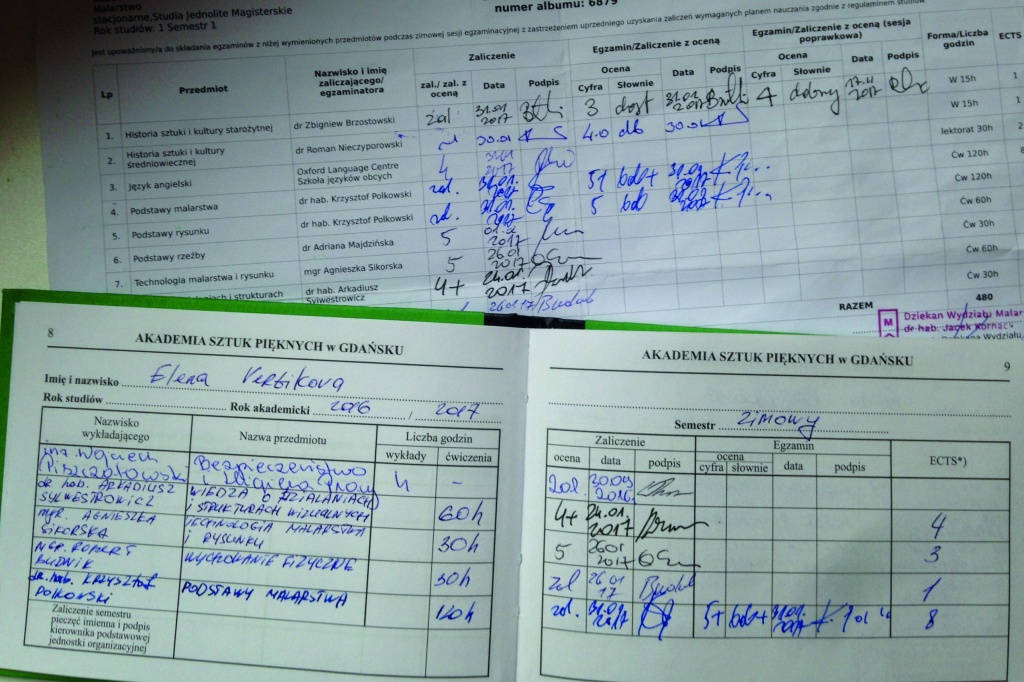 Malarstwo
stacjonarne,Studia Jednolite Magisterskie
Rok studiów: 1 Semestr 1
numer albumu: 6879
Jest upoważniony/a do składania egzaminów z niżej wymienionych przedmiotów podczas zimowej sesji egzaminacyjnej z zastrzeżeniem uprzedniego uzyskania zaliczeń wymaganych planem nauczania zgodnie z regulaminem studiów.
Lp Przedmiot Nazwisko i imię zaliczającego/ egzaminatora Zaliczenie Egzamin/Zaliczenie z oceną Egzamin/Zaliczenie z oceną (sesja poprawkowa) Forma/Liczba godzin ECTS
zal./ zal. z oceną Data Podpis Ocena Cyfra Słownie Data Podpis Ocena Cyfra Słownie Data Podpis
1. Historia sztuki i kultury starożytnej dr Zbigniew Brzostowski zal 31.01 2017 3 dost 31.01 2017 4 dobry 17.II 2017 W 15h 1
2. Historia sztuki i kultury średniowiecznej dr Roman Nieczyporowski 30.01 4.0 db 30.01 W 15h 1
3. Język angielski Oxford Language Centre Szkoła języków obcych 4 lektorat 30h
4. Podstawy malarstwa dr hab. Krzysztof Polkowski zal. 31.01. 2017 5+ bdb+ 31.01. 2017 Ćw 120h
5. Podstawy rysunku dr hab. Krzysztof Polkowski zal. 31.01. 2017 5 bdb 2017 Ćw 120h
6. Podstawy rzeźby dr Adriana Majdzińska 5 2017 Ćw 60h
7. Technologia malarstwa i rysunku mgr Agnieszka Sikorska 5 26.01 2017 Ćw 30h
i strukturach dr hab. Arkadiusz Sylwestrowicz 4+ 24.01. 2017 Ćw 60h
260117 Ćw 30h
RAZEM 480
M Dziekan Wydziału Malar
dr hab. Jacek Kornac
8
AKADEMIA SZTUK PIĘKNYCH w GDAŃSKU
Imię i nazwisko Elena Vertikova
Rok studiów Rok akademicki 2016 , 2017
Nazwisko wykładającego Nazwa przedmiotu Liczba godzin
wykłady ćwiczenia
inż. Wojciech Piszczatowski Bezpieczeństwo i Higiena Pracy 4 –
dr hab. ARKADIUSZ SYLWESTROWICZ WIEDZA O DZIAŁANIACH I STRUKTURACH WIZUALNYCH 60h
mgr. AGNIESZKA SIKORSKA TECHNOLOGIA MALARSTWA I RYSUNKU 30h
MGR. ROBERT BUDNIK WYCHOWANIE FIZYCZNE 30h
dr. hab. KRZYSZTOF POLKOWSKI PODSTAWY MALARSTWA 120h
Zaliczenie semestru
pieczęć imienna i podpis
kierownika podstawowej
jednostki organizacyjnej
9
AKADEMIA SZTUK PIĘKNYCH w GDAŃSKU
Semestr ZIMOWY
Zaliczenie Egzamin ECTS*)
ocena data podpis ocena cyfra słownie data podpis
zal 30.09 2016.
4+ 24.01. 2017 4
5 26.01 2017 3
zal 26 01 17 1
zal. 31.01. 2017 5+ bdb+ 31.01. 2017 8